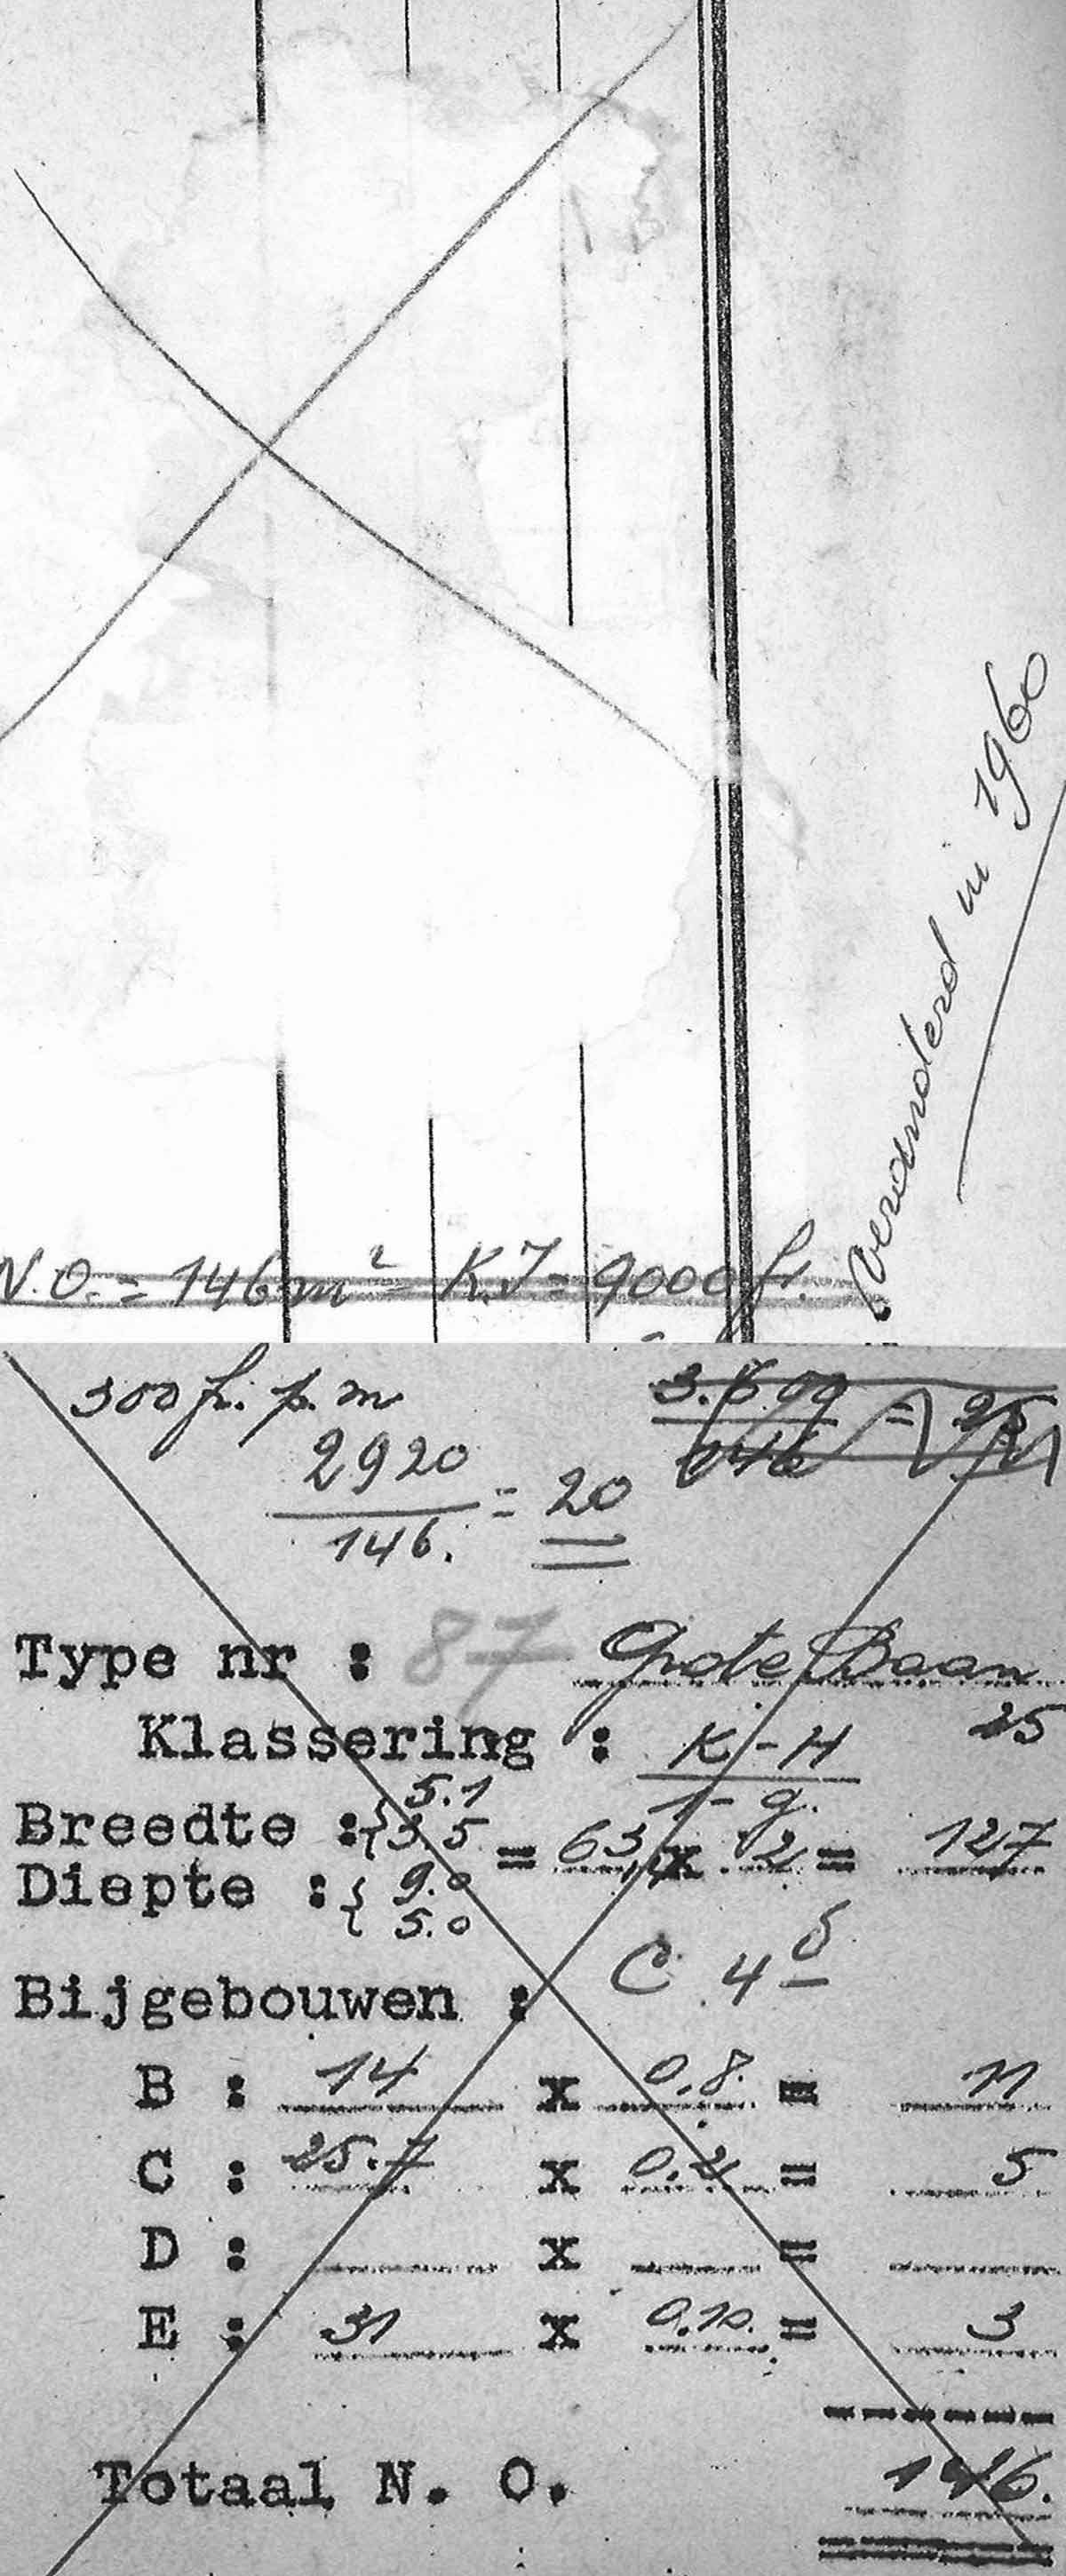 veranderd in 1960
N.O. = 146 m² - K.I = 9000 fr.
300 fr. p. m
2920
146. = 20
3.600
146 = 25
Type nr : 87 Grote Baan
25
Klassering : K - H
1 - g.
Breedte : { 5.1
3.5 = 63 x 2 = 127
Diepte : { 9.0
5.0
C 4 5
Bijgebouwen :
B : 14 x 0,8. = 11
C : 25.7 x 0.2 = 5
D : x =
E : 31 x 0,10. = 3
Totaal N. O. 146.